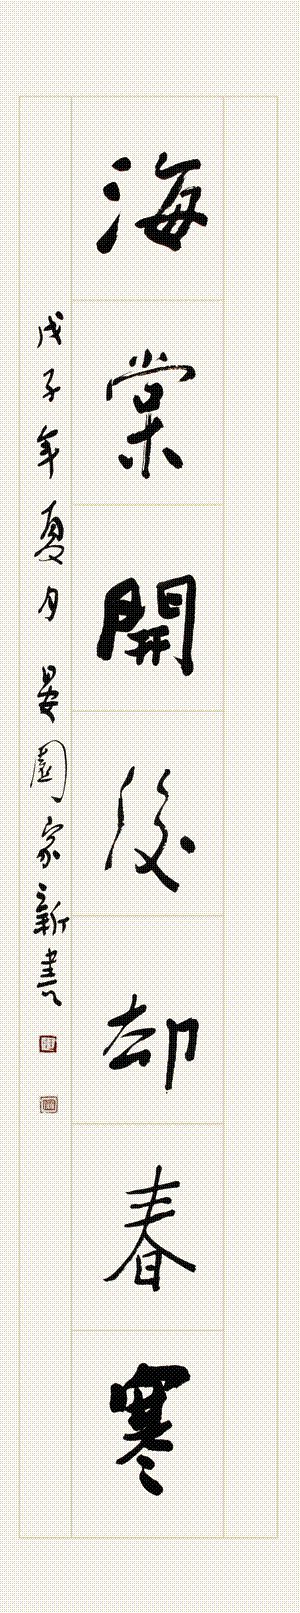 海棠開後却春寒
戊子年夏月晏園家新書